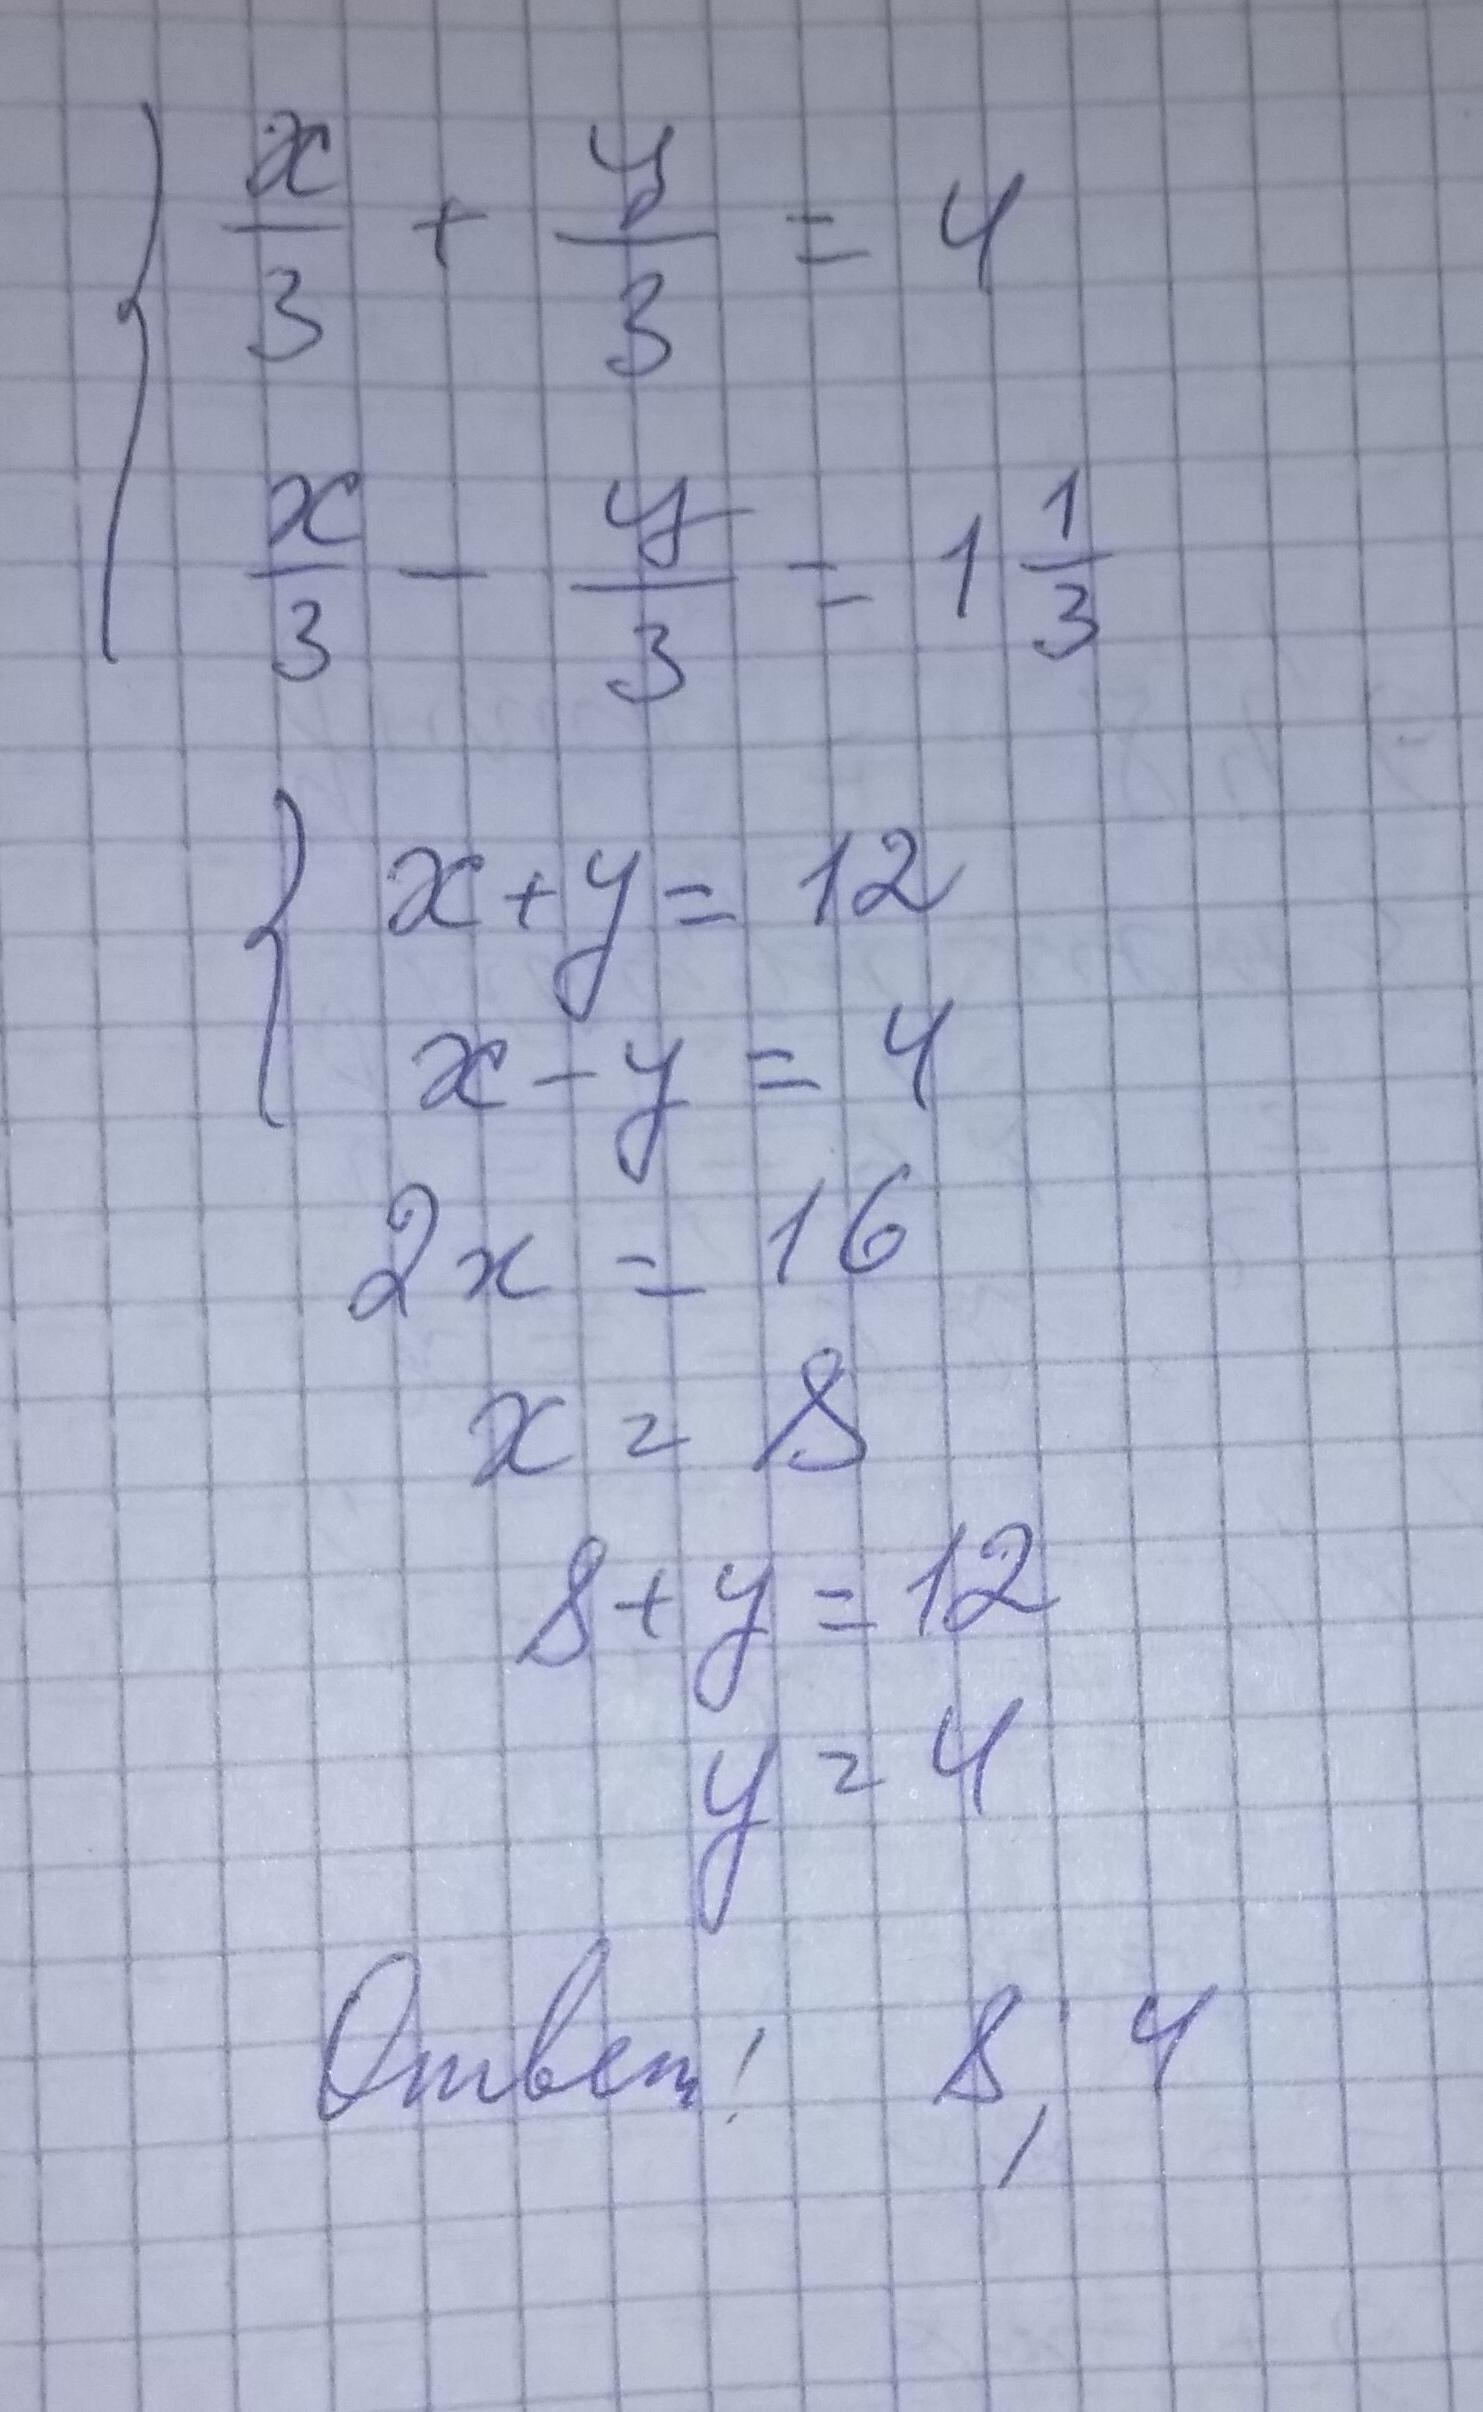 x/3 + y/3 = 4
x/3 - y/3 = 1 1/3
x+y = 12
x-y = 4
2x = 16
x = 8
8+y = 12
y = 4
Ответ: 8; 4